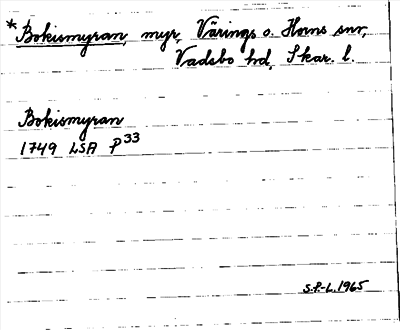 *Bokismyran, myr, Värings o. Horns snr,
Vadsbo hd, Skar. l.
Bokismyran
1749 LSA P33
S.P-L. 1965